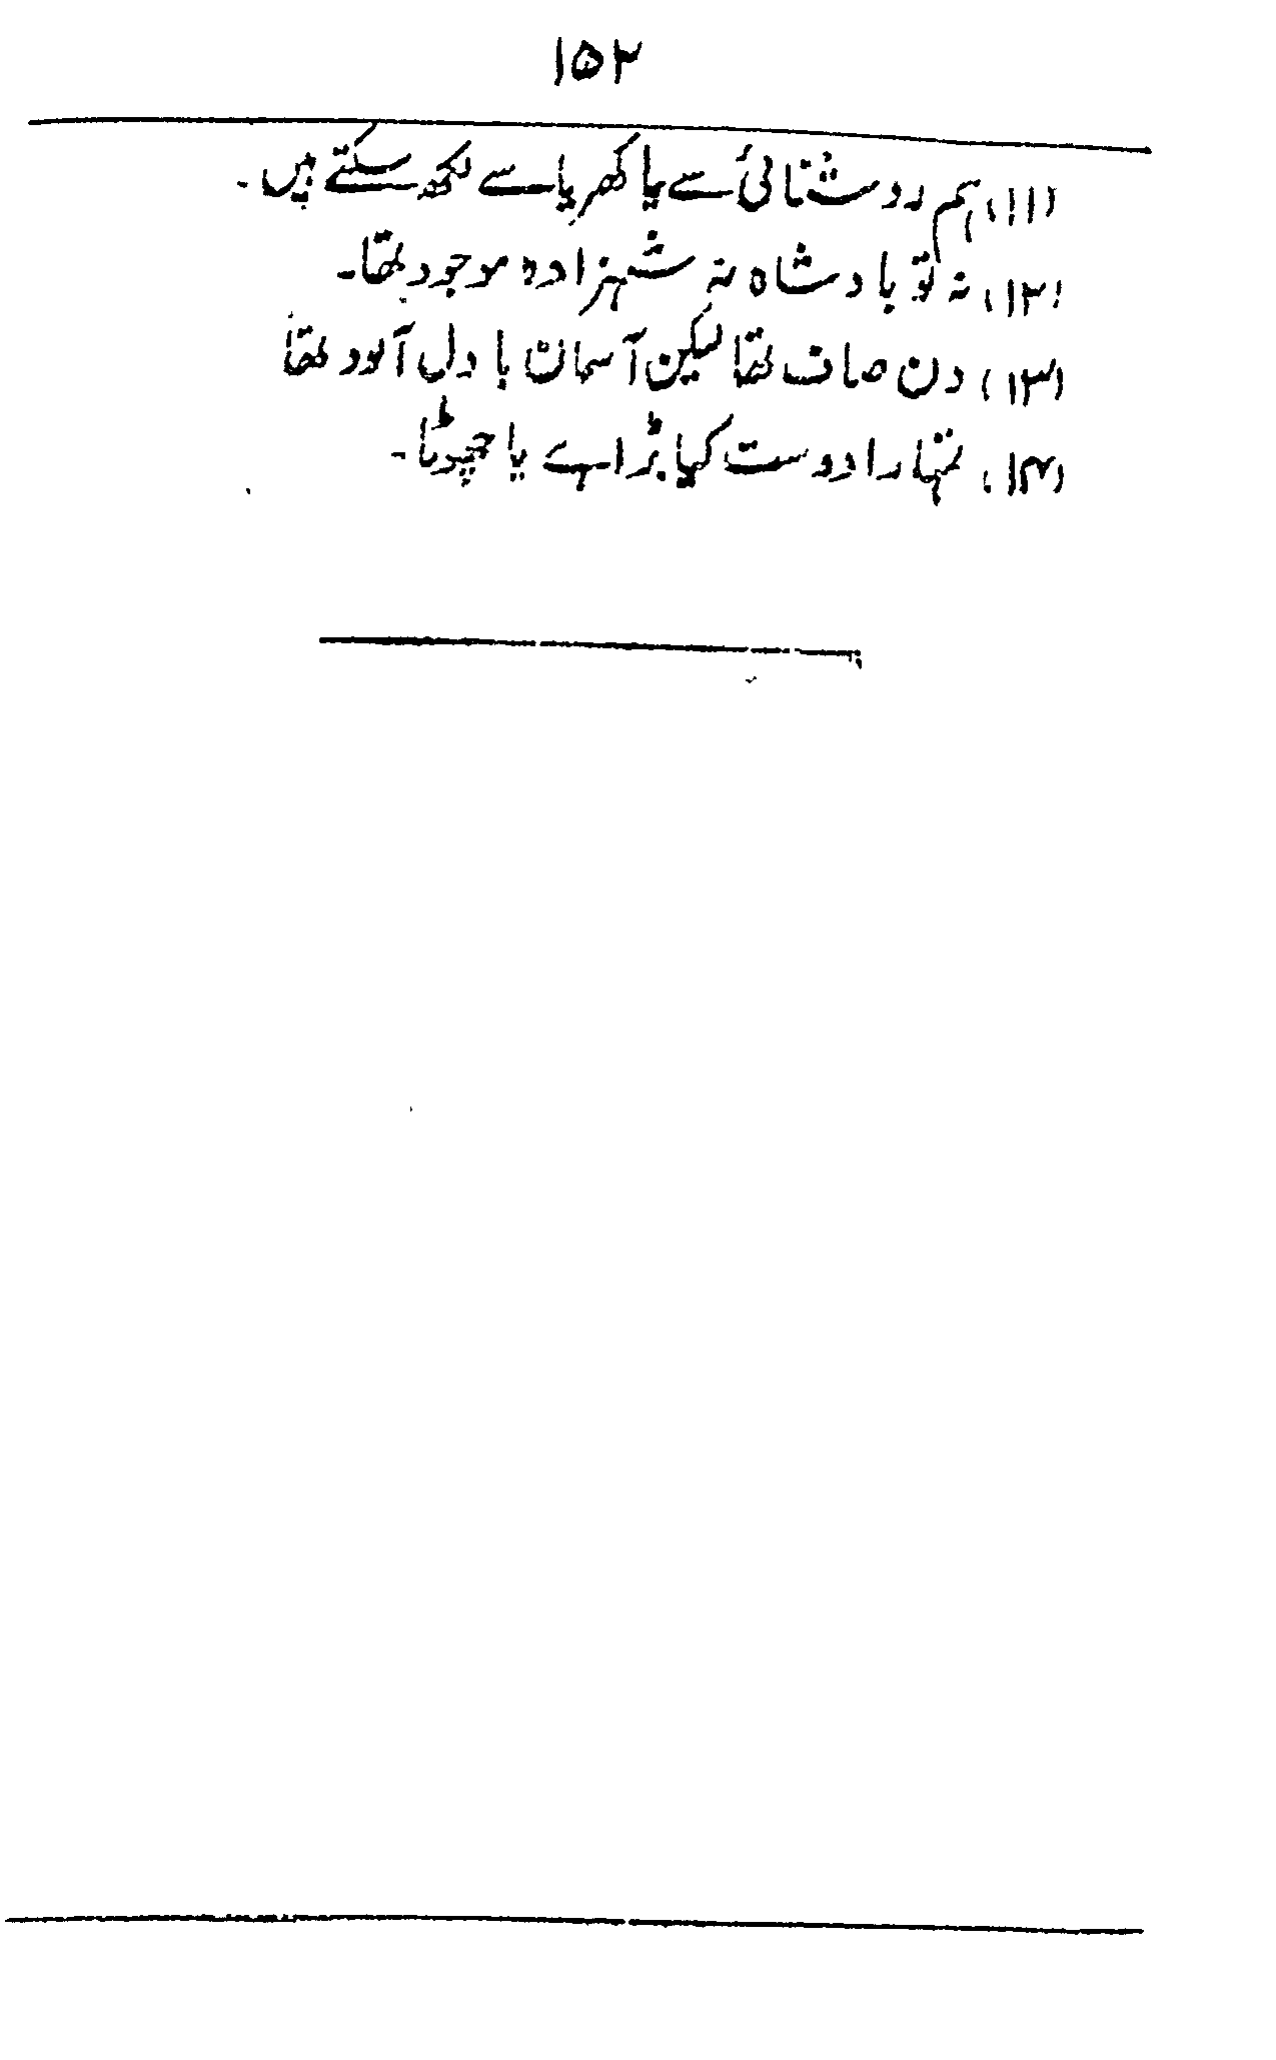 ۱۵۲
(۱۱) ہم روشنائی سے یا کھریا سے لکھ سکتے ہیں۔
(۱۲) نہ تو بادشاہ نہ شہزادہ موجود تھا۔
(۱۳) دن صاف تھا لیکن آسمان بادل آلود تھا
(۱۴) تمہارا دوست کیا بڑا ہے یا چھوٹا۔